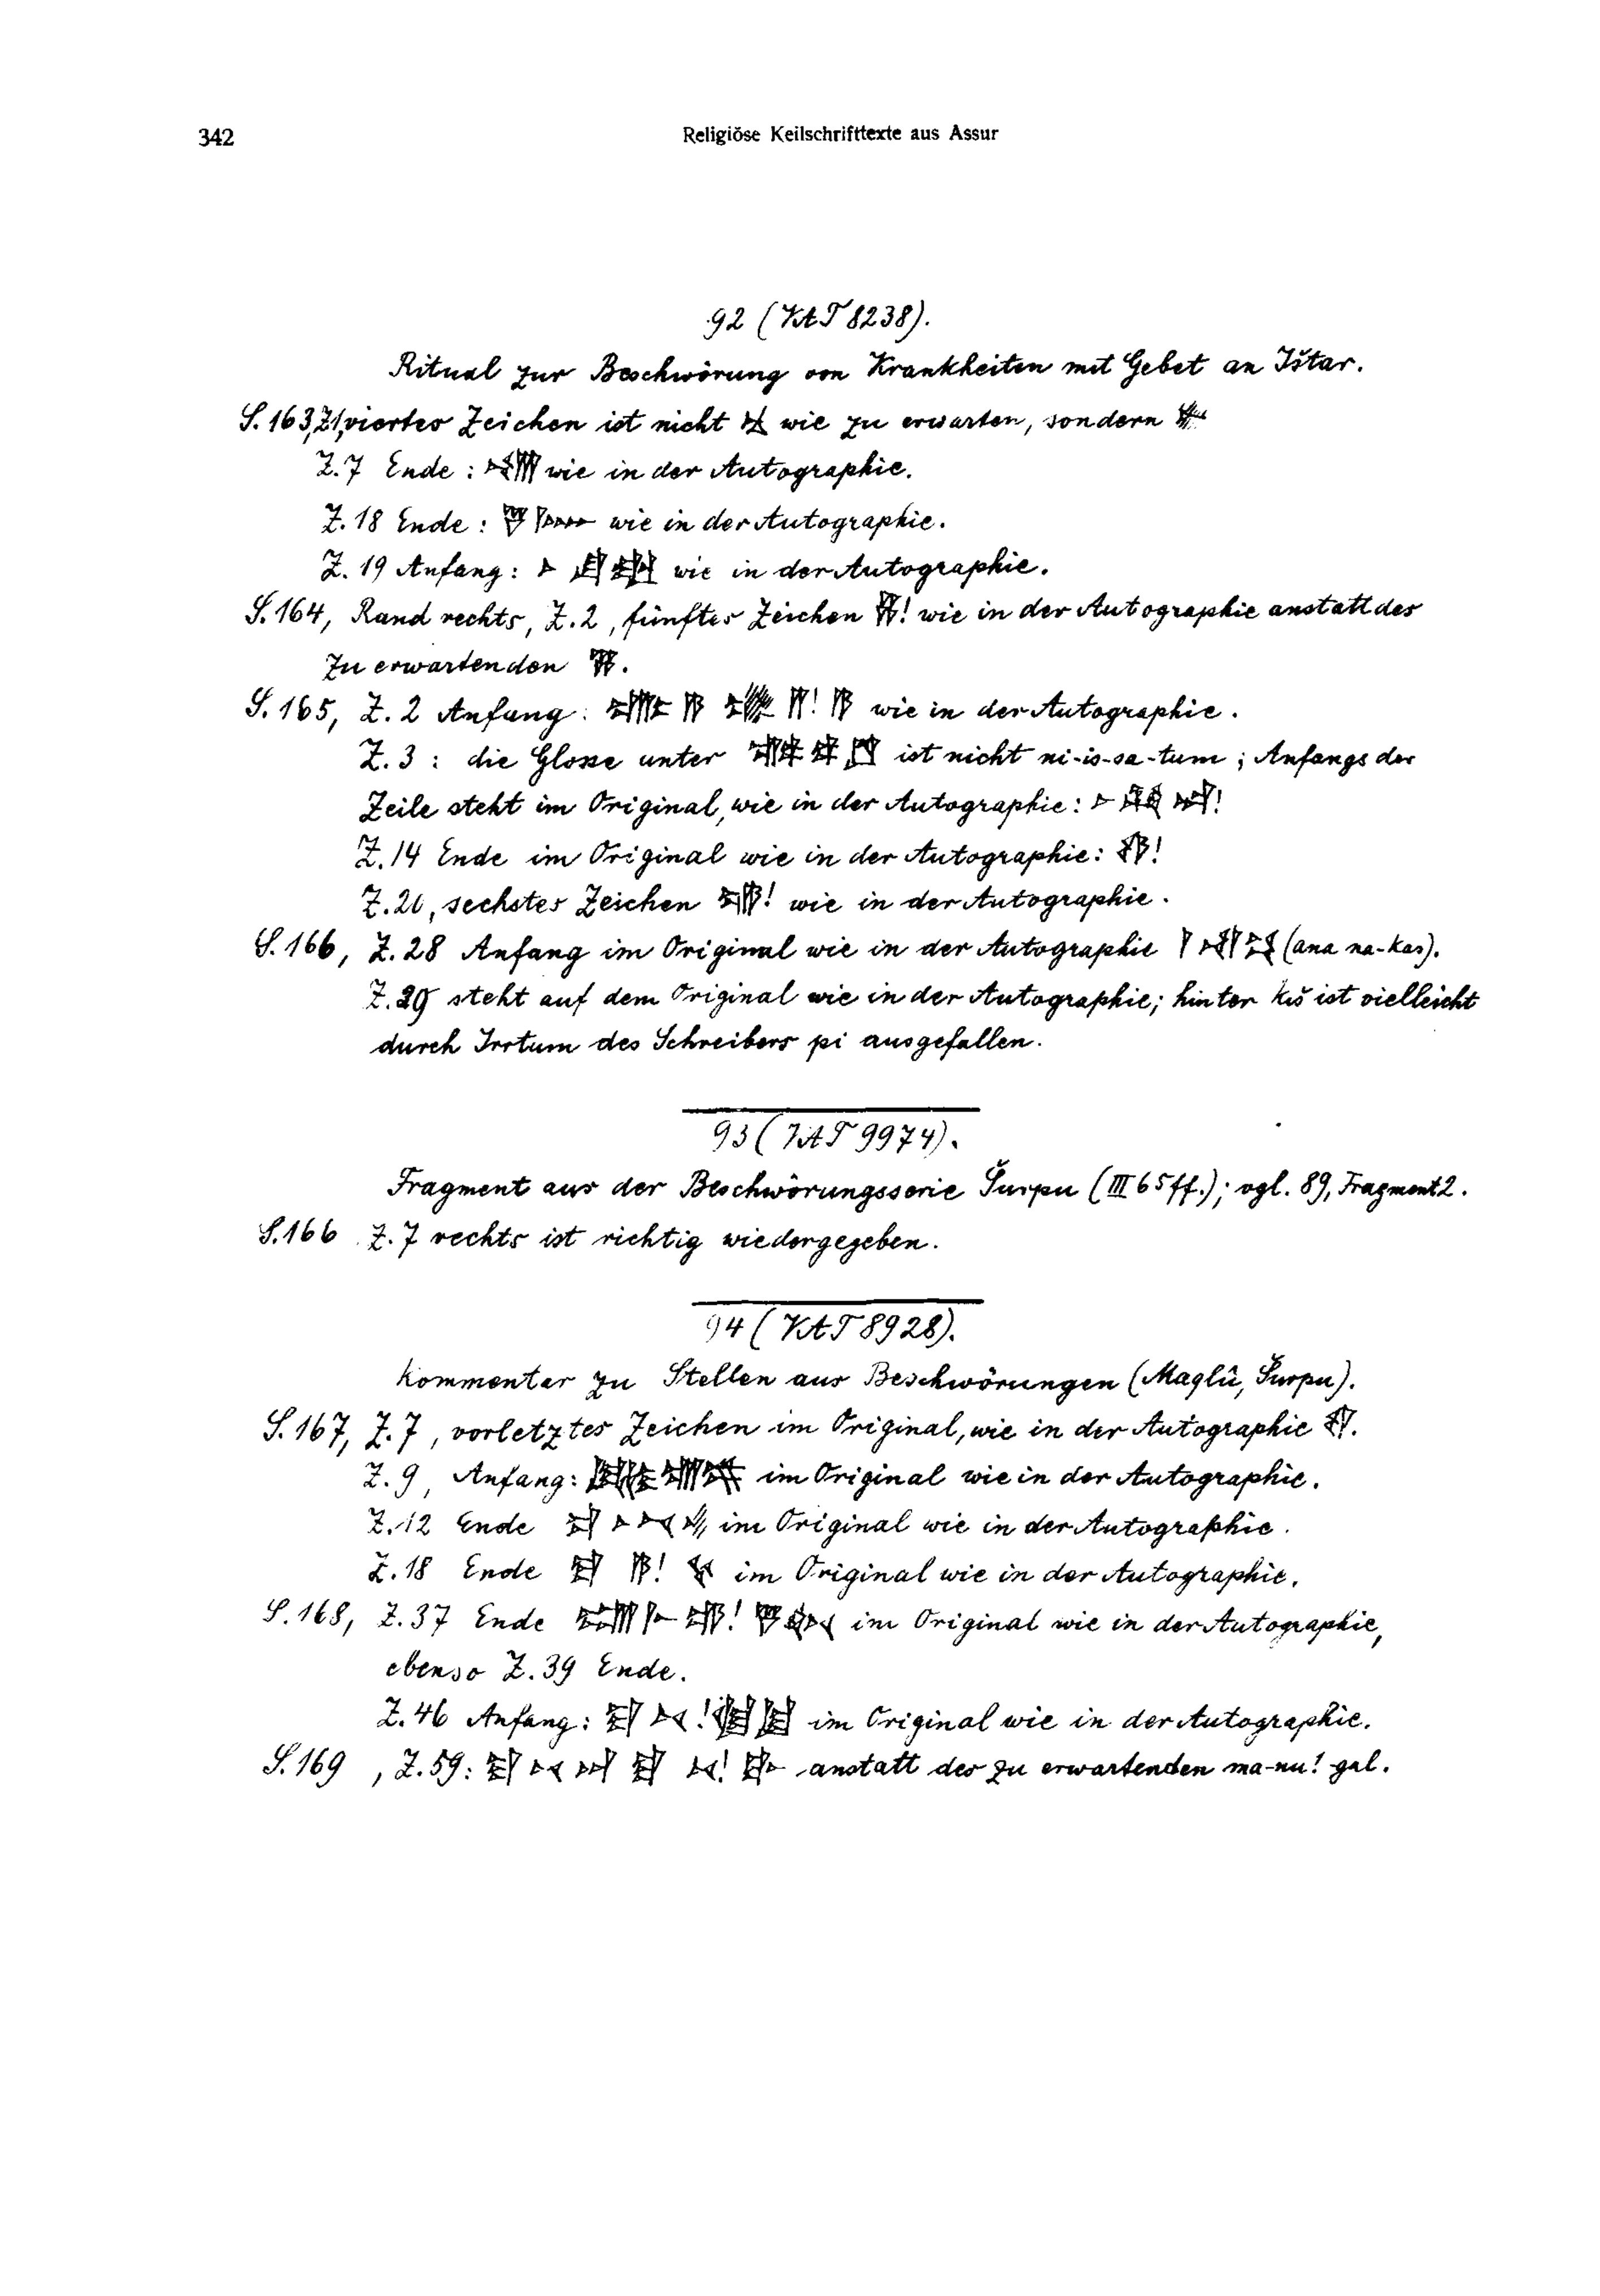 342
Religiöse Keilschrifttexte aus Assur
92 (VAT 8238).
Ritual zur Beschwörung von Krankheiten mit Gebet an Ištar.
S. 163, Z1, viertes Zeichen ist nicht wie zu erwarten, sondern
Z. 7 Ende : wie in der Autographie.
Z. 18 Ende : wie in der Autographie.
Z. 19 Anfang : wie in der Autographie.
S. 164, Rand rechts, Z. 2, fünftes Zeichen ! wie in der Autographie anstatt des
zu erwartenden .
S. 165, Z. 2 Anfang : ! wie in der Autographie.
Z. 3 : die Glosse unter ist nicht ni-is-sa-tum ; Anfangs der
Zeile steht im Original, wie in der Autographie : !
Z. 14 Ende im Original wie in der Autographie : !
sechstes Zeichen ! wie in der Autographie.
S. 166, Z. 28 Anfang im Original wie in der Autographie (ana na-kas).
Z. 29 steht auf dem Original wie in der Autographie; hinter kiš ist vielleicht
durch Irrtum des Schreibers pi ausgefallen.
93 (VAT 9974).
Fragment aus der Beschwörungsserie Šurpu (III 65 ff.); vgl. 89, Fragment 2.
S. 166 Z. 7 rechts ist richtig wiedergegeben.
94 (VAT 8928).
Kommentar zu Stellen aus Beschwörungen (Maqlû, Šurpu).
S. 167, Z. 7, vorletztes Zeichen im Original, wie in der Autographie .
Z. 9, Anfang : im Original wie in der Autographie.
Z. 12 Ende im Original wie in der Autographie.
Z. 18 Ende ! im Original wie in der Autographie.
S. 168, Z. 37 Ende ! im Original wie in der Autographie,
ebenso Z. 39 Ende.
Z. 46 Anfang : ! im Original wie in der Autographie.
S. 169, Z. 59 : ! anstatt des zu erwartenden ma-nu! -gal.